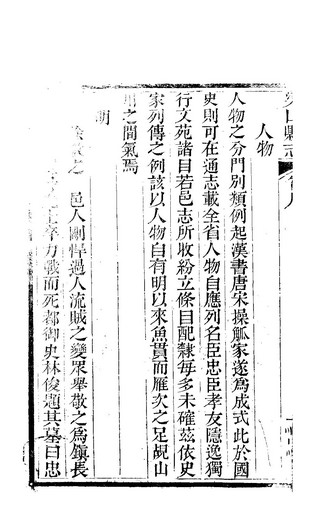 人物
人物之分門別類例起漢書唐宋操觚家遂爲成式此於國
史則可在通志載全省人物自應列名臣忠臣孝友隱逸獨
行文苑諸目若邑志所收紛立條目配隸每多未確茲依史
家列傳之例該以人物自有明以來魚貫而雁次之足覘山
川之間氣焉
明
邑人剛悍過人流賊之變眾舉敬之爲鎮長
力戰而死都御史林俊題其墓曰忠